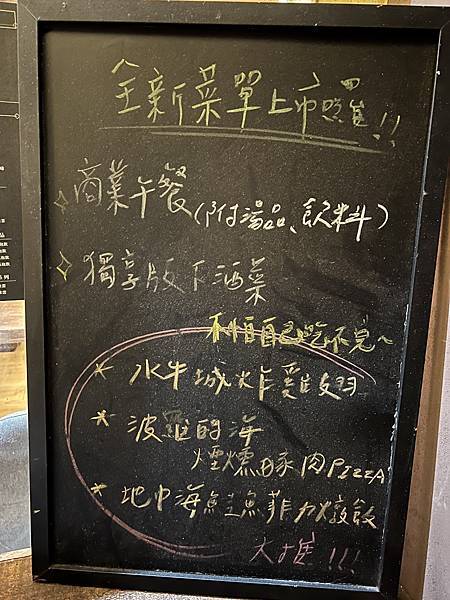 全新菜單上市囉!!
商業午餐(附湯品、飲料)
獨享版下酒菜
不怕自己吃不完~
* 水牛城炸雞翅
* 波羅的海
煙燻豚肉PIZZA
* 地中海鮭魚菲力燉飯
大推!!!